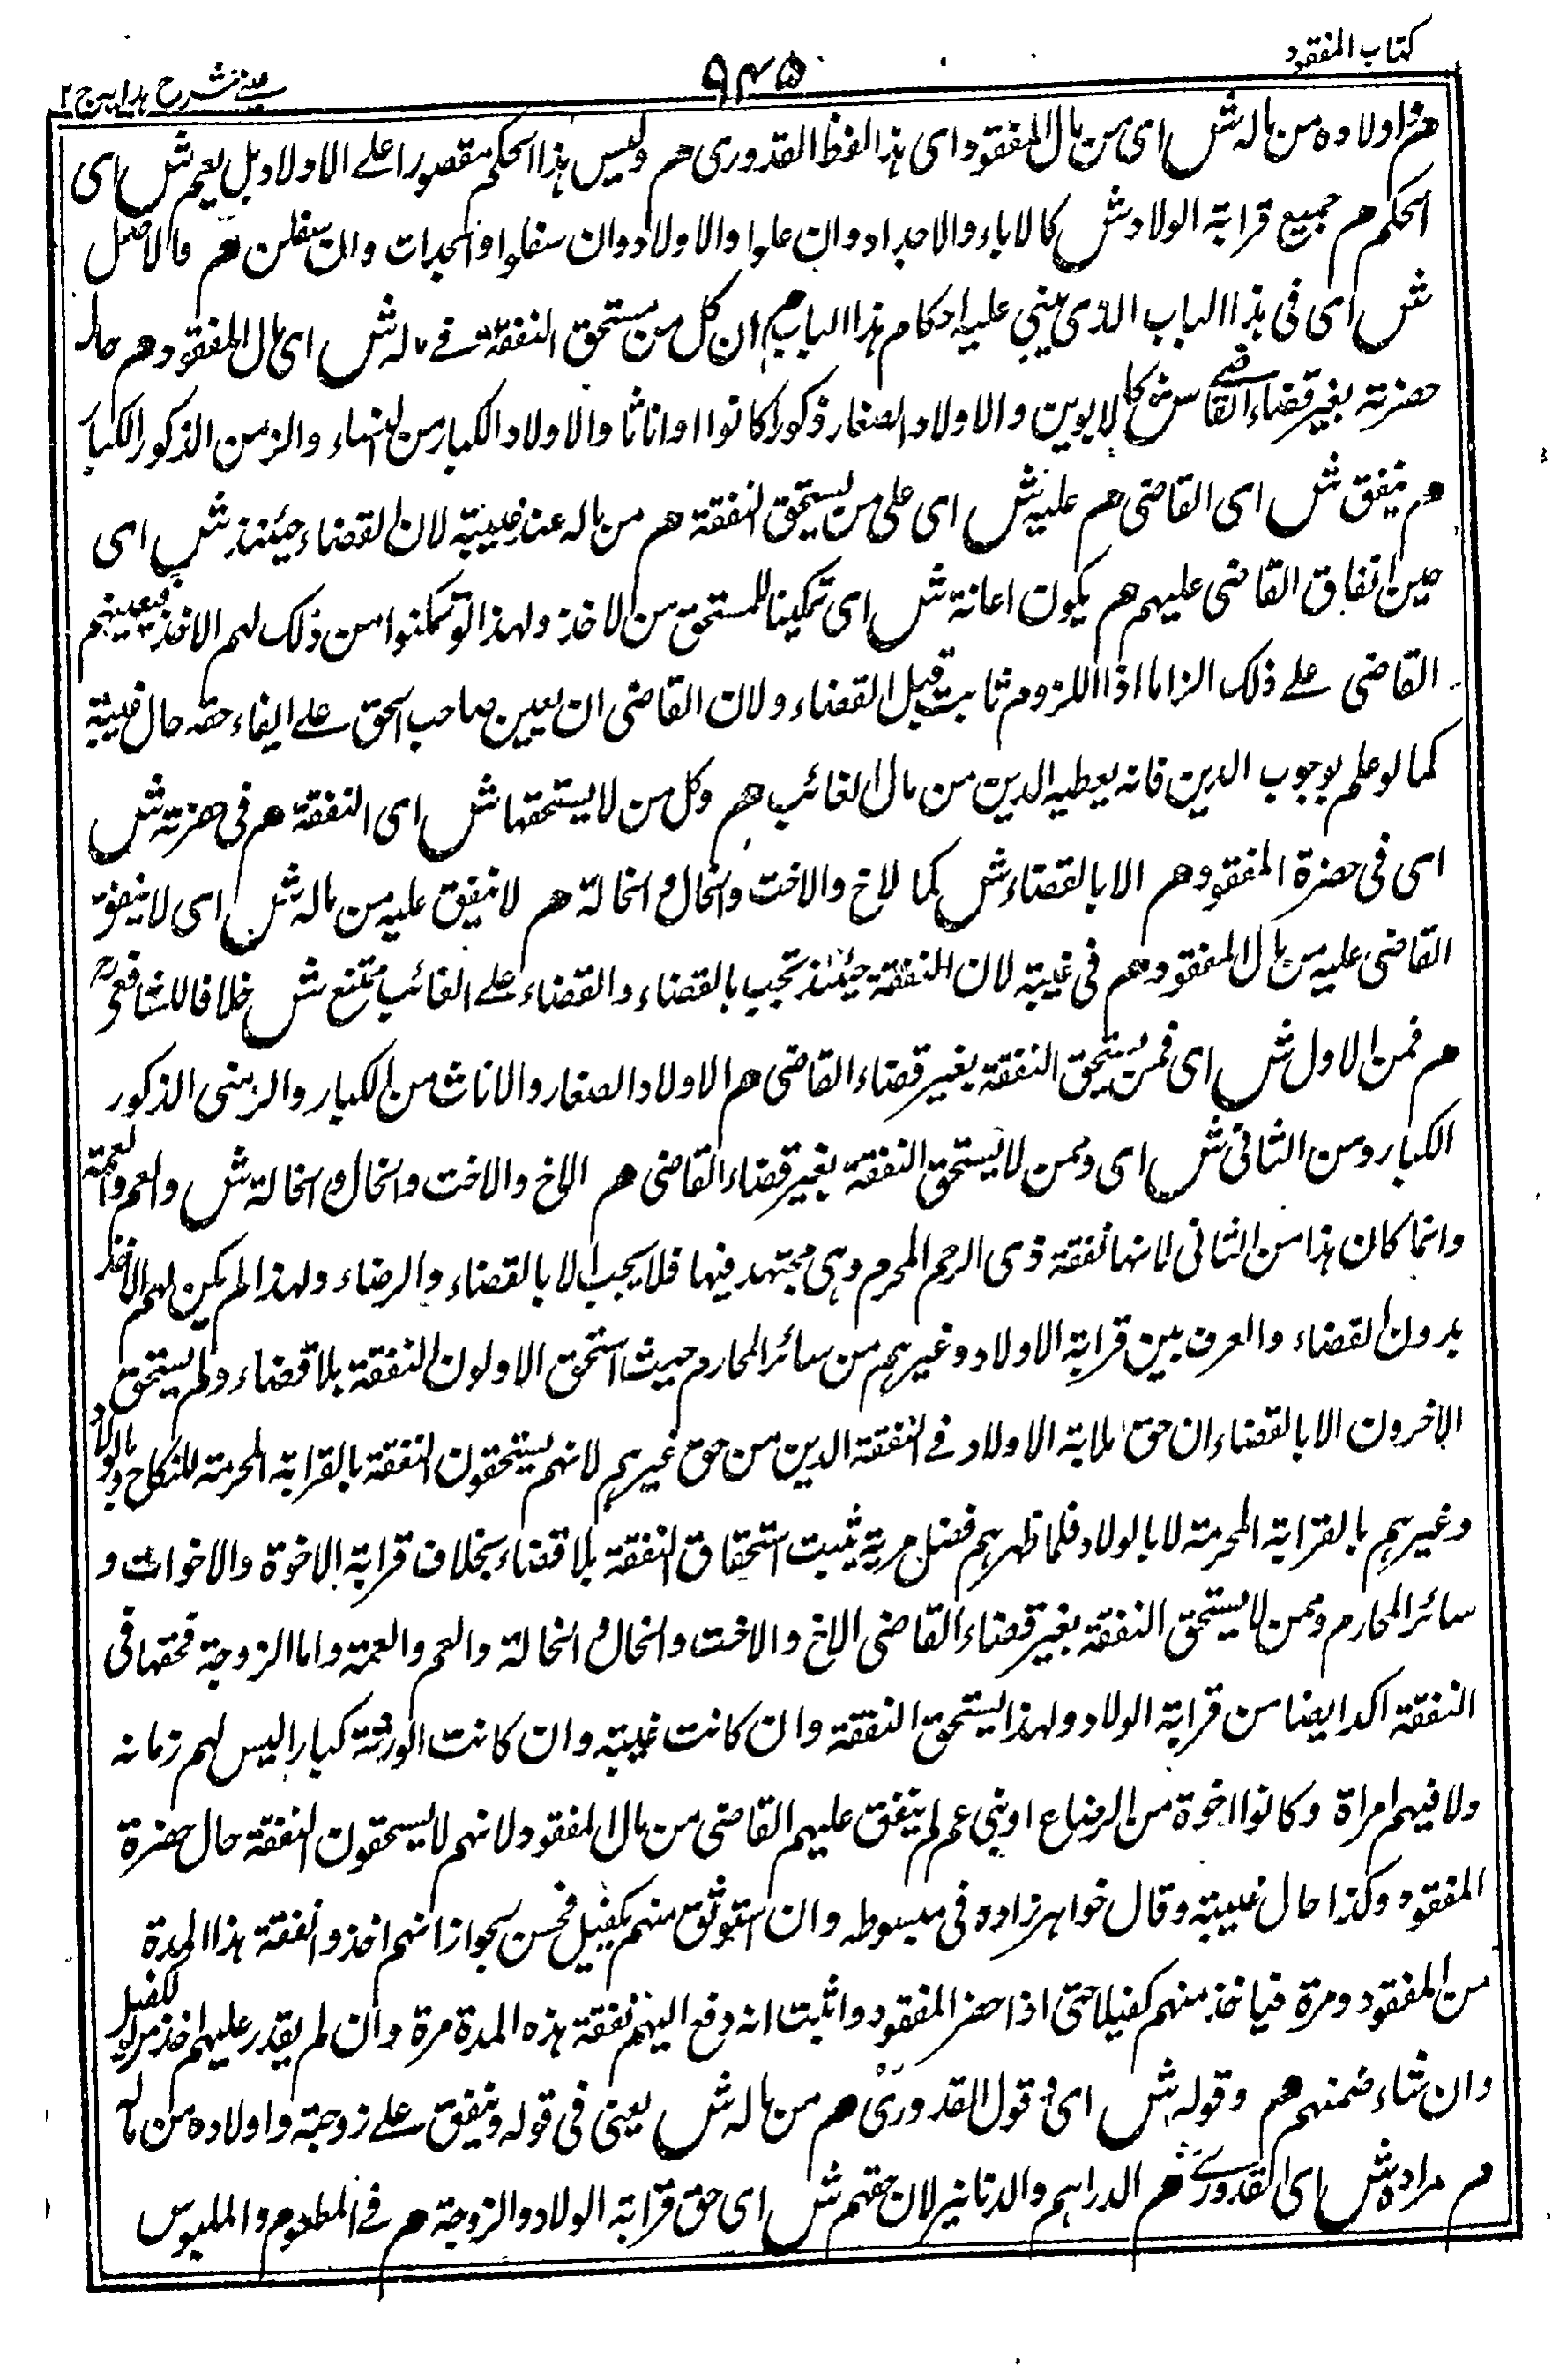 كتاب المفقود
٩٤٥
عينے شرح ہدایہ ج ٢
هم واولاده من ماله ش اى من مال المفقود اى هذا لفظ القدورى هم وليس هذا الحكم مقصورا على الاولاد بل يعم ش اى
الحكم هم جميع قرابة الولاد ش كالاباء والاجداد وان علوا والاولاد وان سفلوا والجدات وان سفلن هم والاصل
ش اى فى هذا الباب الذى يبنى عليه احكام هذا الباب هم ان كل من يستحق النفقة فى ماله ش اى مال المفقود هم حال
حضرته بغير قضاء القاضى ش كالابوين والاولاد الصغار ذكورا كانوا او اناثا والاولاد الكبار من النساء والزمن الذكور الكبار
هم ينفق ش اى القاضى هم عليه ش اى على من يستحق النفقة هم من ماله عند غيبته لان القضاء حينئذ ش اى
حين انفاق القاضى عليهم هم يكون اعانة ش اى تمكينا للمستحق من الاخذ ولهذا لو تمكنوا من ذلك لهم الاخذ فيعينهم
القاضى على ذلك الزاما اذا اللزوم ثابت قبل القضاء ولان القاضى ان يعين صاحب الحق على ايفاء حقه حال غيبته
كما لو علم بوجوب الدين فانه يعطيه الدين من مال الغائب هم وكل من لا يستحقها ش اى النفقة هم فى حضرته ش
اى فى حضرة المفقود هم الا بالقضاء ش كما لاخ والاخت والخال والخالة هم لا ينفق عليه من ماله ش اى لا ينفق
القاضى عليه من مال المفقود هم فى غيبته لان النفقة حينئذ تجب بالقضاء والقضاء على الغائب ممتنع ش خلافا للشافعى رح
هم فمن الاول ش اى فمن يستحق النفقة بغير قضاء القاضى هم الاولاد الصغار والاناث من الكبار والزمنى الذكور
الكبار ومن الثانى ش اى وممن لا يستحق النفقة بغير قضاء القاضى هم الاخ والاخت والخال والخالة ش والعم والعمة
وانما كان هذا من الثانى لانها نفقة ذى الرحم المحرم وهى مجتهد فيها فلا يجب الا بالقضاء والرضاء ولهذا لم يكن لهم الاخذ
بدون القضاء والعرف بين قرابة الاولاد وغيرهم من سائر المحارم حيث استحق الاولون النفقة بلا قضاء ولم يستحق
الاخرون الا بالقضاء ان حق الاولاد فى النفقة الدين من حق غيرهم لانهم يستحقون النفقة بالقرابة المحرمة للنكاح وبالولاد
وغيرهم بالقرابة المحرمة لا بالولاد فلما ظهر لهم فضل مزية يثبت استحقاق النفقة بلا قضاء بخلاف قرابة الاخوة والاخوات و
سائر المحارم وممن لا يستحق النفقة بغير قضاء القاضى الاخ والاخت والخال والخالة والعم والعمة واما الزوجة فحقها فى
النفقة اكد ايضا من قرابة الولاد ولهذا يستحق النفقة وان كانت غيبته وان كانت الورثة كبارا ليس لهم زمانه
ولا فيهم امراة وكانوا اخوة من الرضاع او بنى عم لم ينفق عليهم القاضى من مال المفقود لانهم لا يسحقون النفقة حال حضرة
المفقود وكذا حال غيبته وقال خواهرزاده فى مبسوطه وان استوثق منهم بكفيل فحسن بجواز انهم اخذوا نفقة هذا المدة
من المفقود ومرة فياخذ منهم كفيلا حتى اذا حضر المفقود واثبت انه دفع اليهم نفقة هذه المدة مرة وان لم يقدر عليهم اخذ من الكفيل
وان شاء ضمنهم هم وقوله ش اى قول القدورى هم من ماله ش يعنى فى قوله وينفق على زوجته واولاده من ماله
هم مراده ش اى القدورى هم الدراهم والدنانير لان حقهم ش اى حق قرابة الولاد والزوجة هم فى المطعوم والملبوس